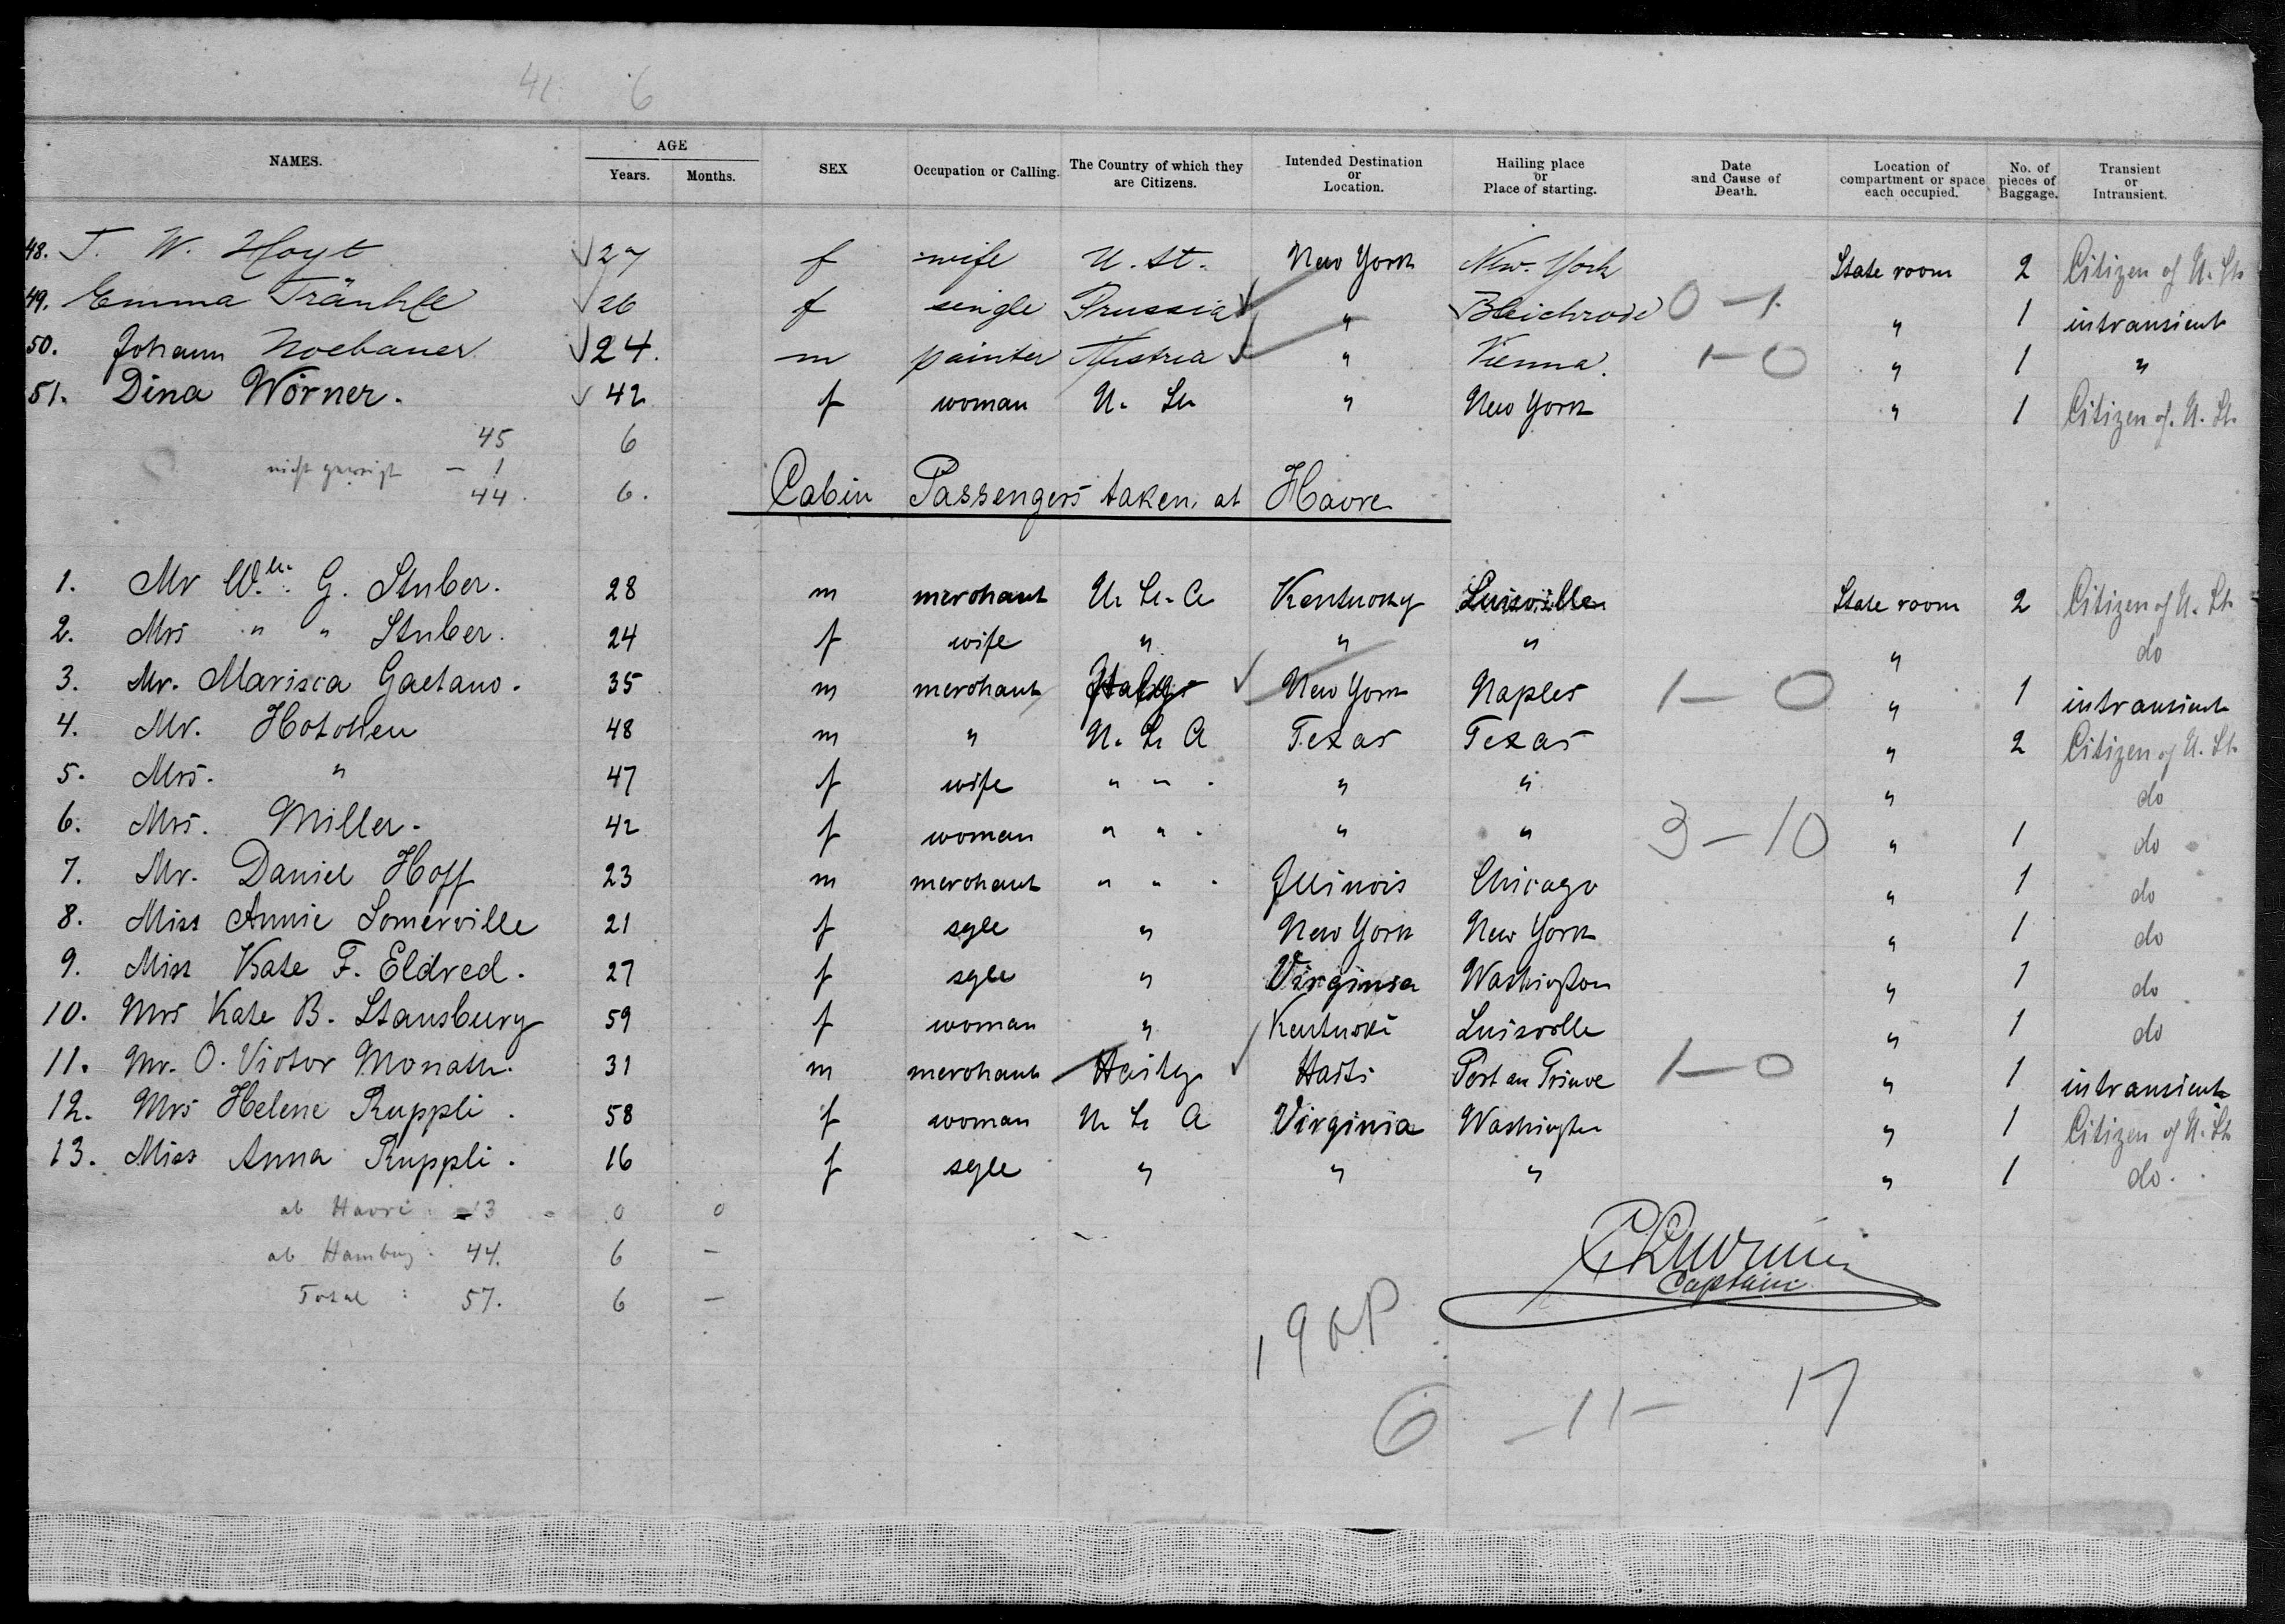 41 6
NAMES. AGE Years. Months. SEX Occupation or Calling. The Country of which they are Citizens. Intended Destination or Location. Hailing place or Place of starting. Date and Cause of Death. Location of compartment or space each occupied. No. of pieces of Baggage. Transient or Intransient.
48. T. W. Hoyt 27 f wife U. St. New York New York State room 2 Citizen of U. St.
49. Emma Tränkle 26 f single Prussia " Bleichrode 0-1 " 1 intransient
50. Johann Noebauer 24. m painter Austria " Vienna. 1-0 " 1 "
51. Dina Wörner. 42 f woman U. St. " New York " 1 Citizen of. U. St.
45 6
nicht - 1
44. 6.
Cabin Passengers taken, at Havre
1. Mr Wm. G. Stuber. 28 m merchant U. St. A Kentucky Luisville State room 2 Citizen of U. St.
2. Mrs " " Stuber. 24 f wife " " " " do
3. Mr. Marisca Gaetano. 35 m merchant Italy New York Naples 1-0 " 1 intransient
4. Mr. 48 m " U. St. A Texas Texas " 2 Citizen of U. St.
5. Mrs. " 47 f wife " " . " " " do
6. Mrs. Miller. 42 f woman " " . " " 3-10 " 1 do
7. Mr. Daniel Hoff 23 m merchant " " . Illinois Chicago " 1 do
8. Miss Annie Somerville 21 f sgle " New York New York " 1 do
9. Miss Kate F. Eldred. 27 f sgle " Virginia Washington " 1 do
10. Mrs Kate B. Stansbury 59 f woman " Kentucki Luisville " 1 do
11. Mr. O. Victor 31 m merchant Haity Haiti Port au Prince 1-0 " 1 intransient
12. Mrs Helene Ruppli. 58 f woman U. St. A Virginia Washington " 1 Citizen of U. St.
13. Miss Anna Ruppli. 16 f sgle " " " " 1 do.
ab Havre: 13 0 0
ab Hamburg: 44. 6 -
Total: 57. 6 -
Captain
6 - 11 - 17